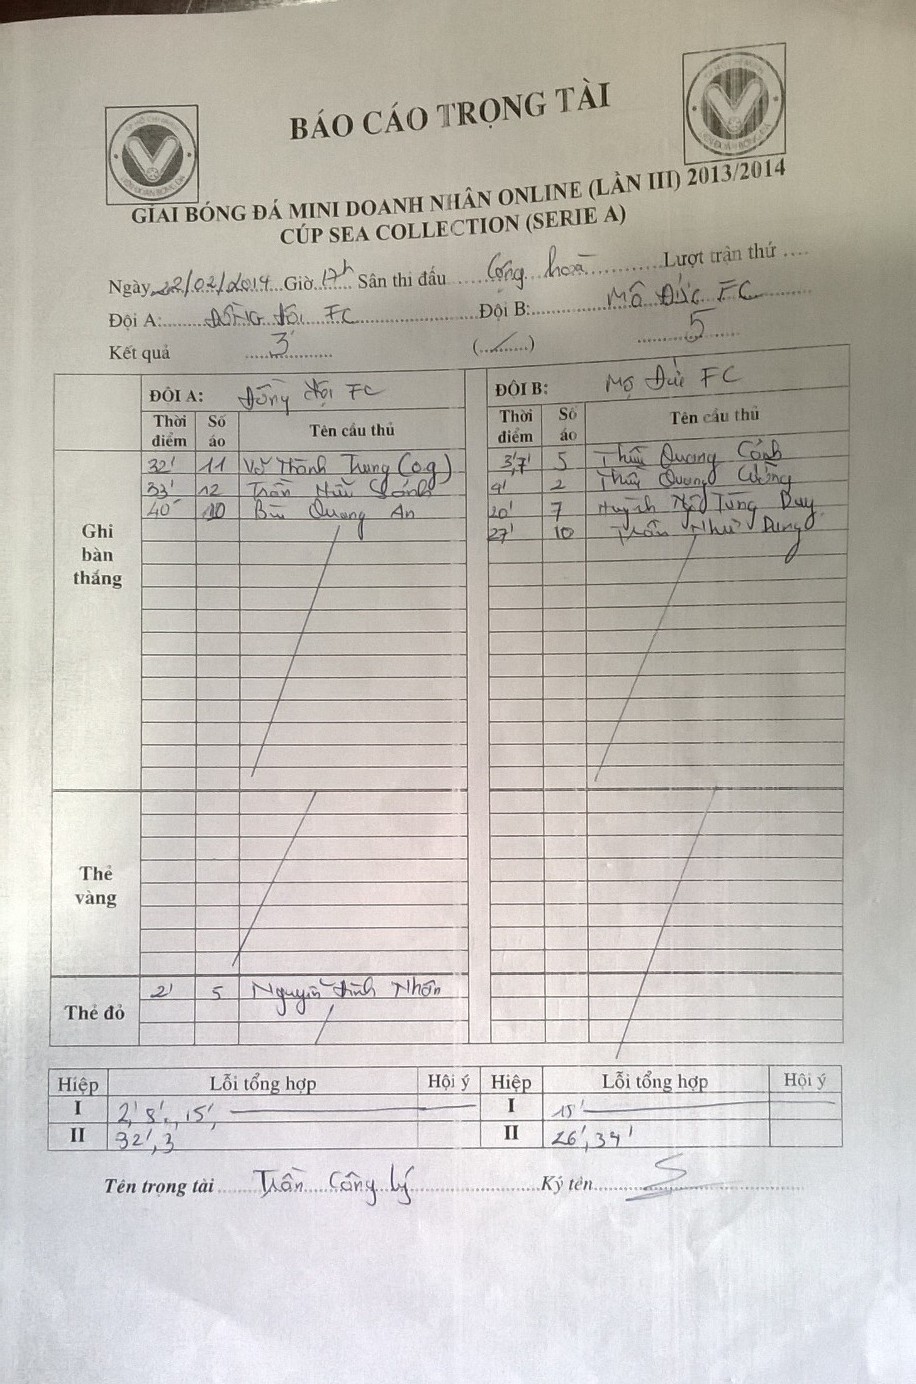 BÁO CÁO TRỌNG TÀI
GIẢI BÓNG ĐÁ MINI DOANH NHÂN ONLINE (LẦN III) 2013/2014
CÚP SEA COLLECTION (SERIE A)
Ngày 22/02/2014 Giờ 17h Sân thi đấu Cộng hoà Lượt trận thứ ....
Đội A: ĐỒNG đội FC Đội B: Mộ ĐỨC FC
Kết quả 3 (...) 5
ĐỘI A: Đồng đội FC ĐỘI B: Mộ Đức FC
Thời điểm Số áo Tên cầu thủ Thời điểm Số áo Tên cầu thủ
Ghi bàn thắng
32' 11 Võ Thành Trung (o.g) 3',7' 5 Quang Cảnh
33' 12 Trần Hữu 9' 2 Quang Cường
40' 10 Bùi Quang An 20' 7 Huỳnh Ngô Tùng Duy
27' 10 Trần Như Dũng
Thẻ vàng
Thẻ đỏ
2' 5 Nguyễn Đình Nhân
Hiệp Lỗi tổng hợp Hội ý Hiệp Lỗi tổng hợp Hội ý
I 2', 8', 15', I 15'
II 32', 3 II 26', 34'
Tên trọng tài Trần Công Lý Ký tên